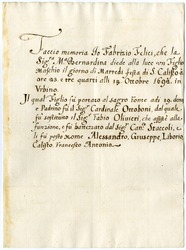 Faccio memoria Io Fabrizio Felici, che la
Sig.ra M.a Bernardina diede alla luce un Figlio
Maschio il giorno di Martedi festa di S. Calisto a
ore 23. e tre quarti alli 19. Ottobre 1694 in
Urbino.
Il qual Figlio fù portato al Sagro Fonte adi 19. detto
e Padrino fu il Sig.r Cardinale Ottoboni, dal quale
fù sostituito il Sig.r Fabio Olivieri, che assistè alla
funzione, e fù battezzato dal Sig.r Can.co Staccoli, e
li fù posto Nome Alessandro, Giuseppe, Liborio,
Calisto Francesco Antonio.